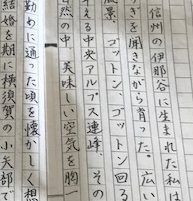 信州の伊那谷に生まれた私は
ぎを聞きながら育った。広い
風景、ゴットン、ゴットン回る
える中央アルプス連峰、その
自然の中、美味しい空気を胸一
勤めに通った頃を懐かしく想
結婚を期に横須賀の小矢部で